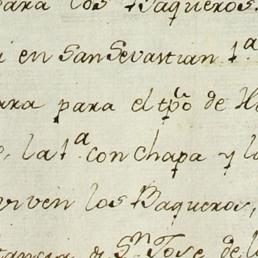 para los Baqueros
en San Sevastian 1ª
para el tpo de
la 1ª con chapa y l
viven los Baqueros,
tancia d Sn Jose de l